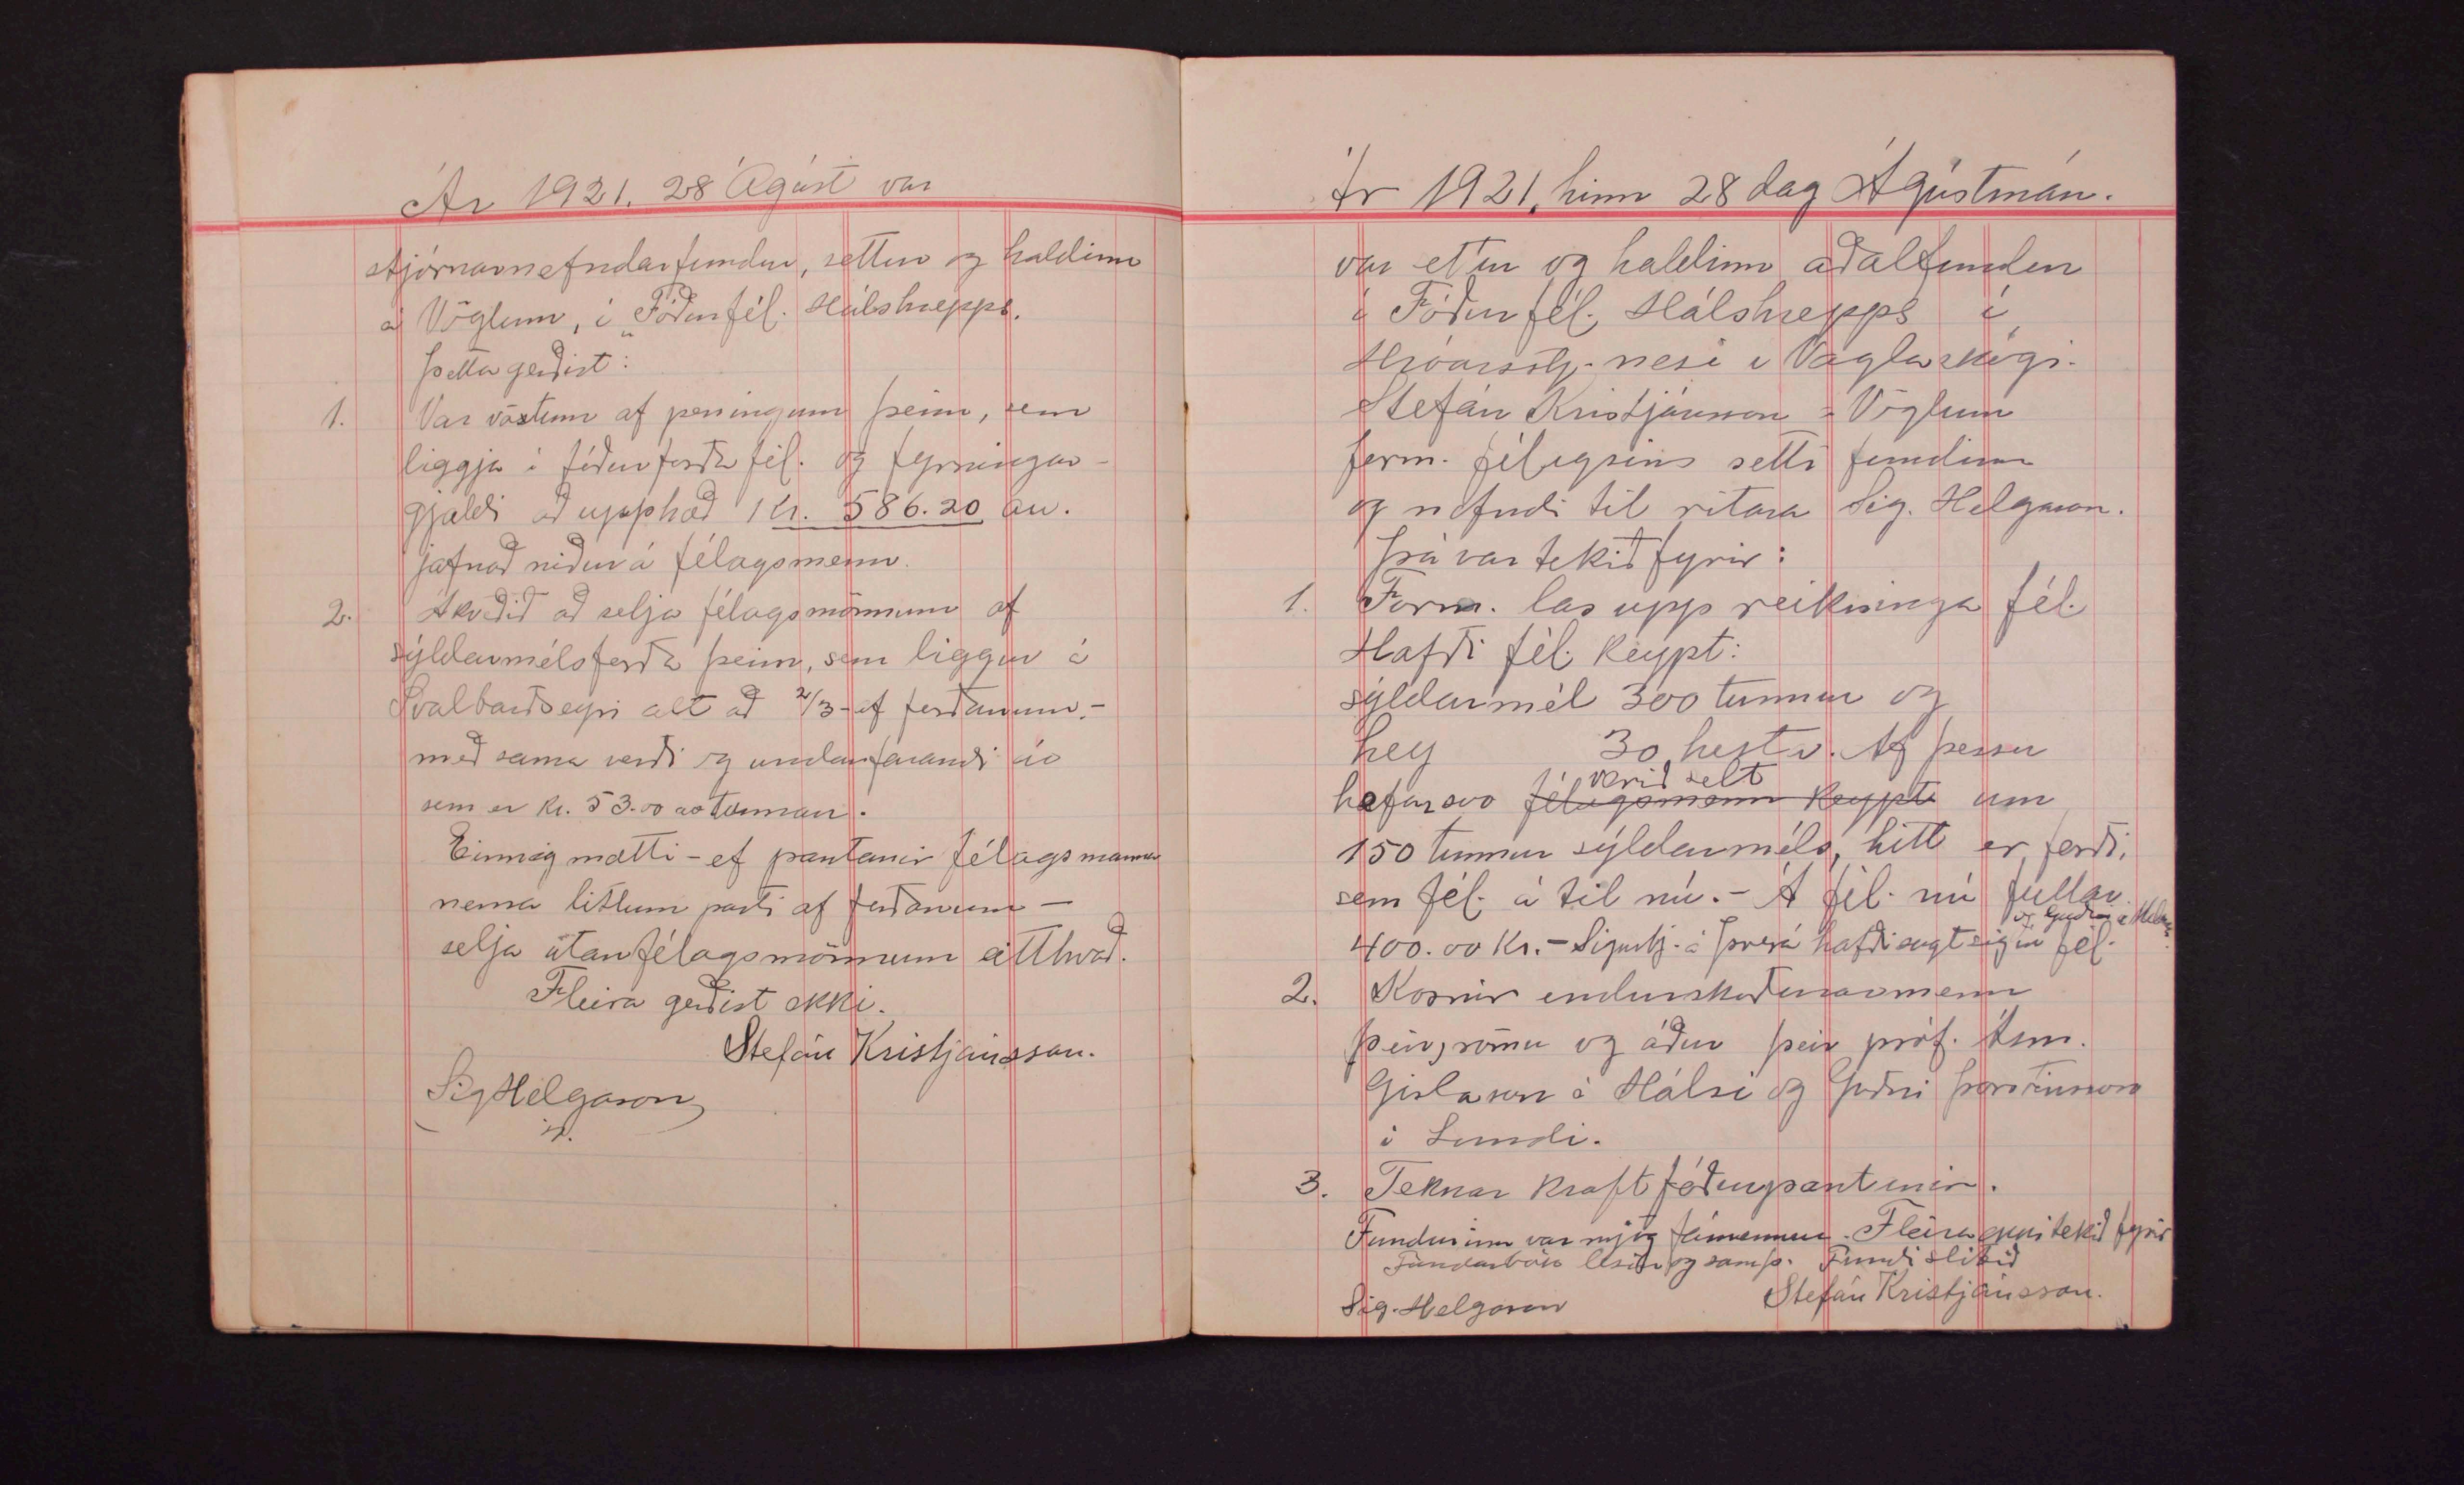 Ár 1921. 28 Ágúst var
stjórnarnefndarfundur, settur og haldinn
á Vöglum, í Fóðurfél. Hálshrepps.
Þetta gerðist:
1. Var vöxtum af peningum þeim, sem
liggja í fóðurforða fél. og fyrningar-
gjaldi að upphæð 1 Kr. 586.20 au.
jafnað niður á félagsmenn.
2. Ákveðið að selja félagsmönnum af
sýldarmélsforða þeim, sem liggur á
Svalbarðseyri alt að 2/3 - af forðanum. -
með sama verði og undanfarandi ár
sem er kr. 53.00 tunnan.
Einnig mætti - ef pantanir félagsmanna
nema litlum parti af forðanum -
selja utanfélagsmönnum eitthvað.
Fleira gerðist ekki.
Stefán Kristjánsson.
Sig Helgason
Ár 1921, hinn 28 dag Ágústmán.
var ettur og haldinn aðalfundur
í Fóðurfél. Hálshrepps í
Hróarsstj. nesi í Vaglaskógi.
Stefán Kristjánsson á Vöglum
form. félagsins setti fundinn
og nefndi til ritara Sig. Helgason.
Þá var tekið fyrir:
1. Form. las upp reikninga fél.
Hafði fél. keypt:
sýldarmél 300 tunnur og
hey 30 hestv. Af þessu
verið selt
hafa svo félagsmenn keypt um
150 tunnur sýldarméls, hitt er forði,
sem fél. á til nú. - Á fél. nú fullar
og Guðni á Melum
400.00 Kr. - Sigurbj. á Þverá hafði sagt sig úr fél.
2. Kosnir endurskoðunarmenn
þeir sömu og áður þeir próf. Ásm.
Gíslason á Hálsi og Guðni Þorsteinsson
í Lundi.
3. Teknar kraftfóðurpantanir.
Fundurinn var mjög fámennur. Fleira ekki tekið fyrir
Fundarbók lesin og samþ. Fundi slitið
Stefán Kristjánsson.
Sig. Helgason